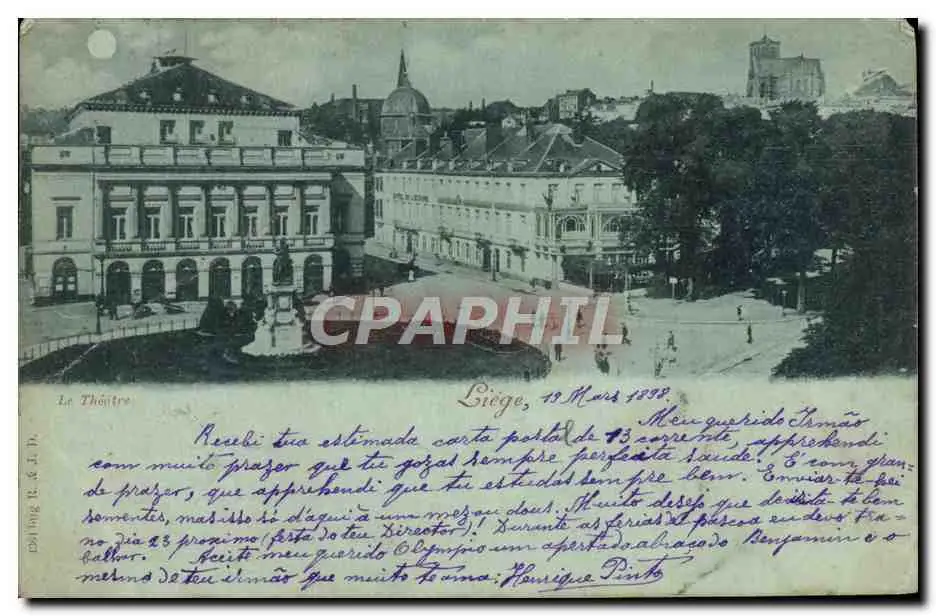 HOTEL DE L'EUROPE
CPAPHIL
Le Théâtre
Liége, 19 Mars 1898.
Meu querido Irmão
Recebi tua estimada carta postal de 13 corrente, apprehendi
com muito prazer que tu gozas sempre perfeita saude. É com gran-
de prazer, que apprehendi que tu estudas sempre bem. Enviar-te-hei
sementes, mas isso só d'aqui à um mez ou dous. Muito desejo que te bem
no dia 23 proximo (festa do teu Director)! Durante as ferias da pascoa eu devo tra-
balhar. Aceite meu querido Olympio um apertado abraço do Benjamin e o
mesmo de teu irmão que muito te ama: Henrique Pinto
R. & J. D.